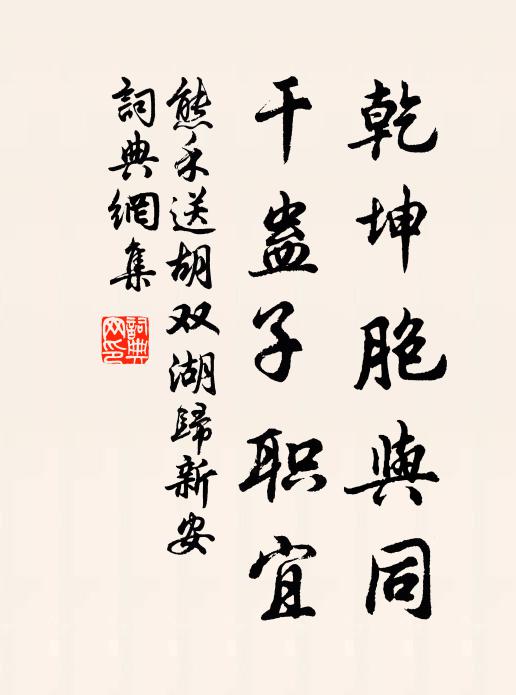 乾坤胞與同
干蛊子职宜
熊禾送胡双湖歸新安
詞典網集
詞典网印